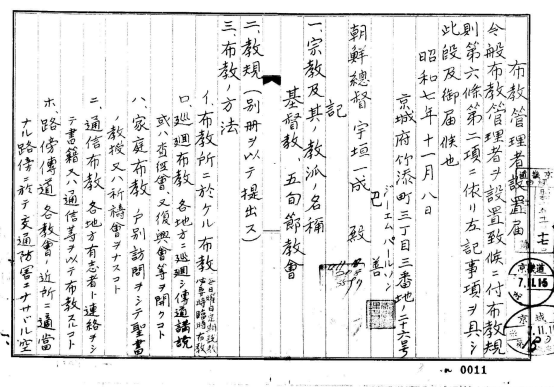 布教管理者設置届
今般布教管理者ヲ設置致候ニ付布教規
則第六條第二項ニ依リ左記事項ヲ具シ
此段及御届候也
昭和七年十一月八日
京城府竹添町三丁目三番地ノ二十六号
ジーエムパールソン
巴 善
朝鮮總督 宇垣一成 殿
記
一、宗教及其ノ教派ノ名稱
基督教 五旬節教會
二、教規(別册ヲ以テ提出ス)
三、布教ノ方法
イ、布教所ニ於ケル布教
ロ、巡廻布教 各地方ニ巡廻シ傳道講説
或ハ査經會又ハ復興會等ヲ開クコト
ハ、家庭布教 戸別訪問ヲシテ聖書
ノ教授又ハ祈禱會ヲナスコト
ニ、通信布教 各地方有志者ト連絡ヲシ
テ書籍又ハ通信等ヲ以テ布教スルコト
ホ、路傍傳道 各教會ノ近所ニ適當
ナル路傍ニ於テ交通防害ニナラザル空
京城
7.11.16
7.11.1
0011